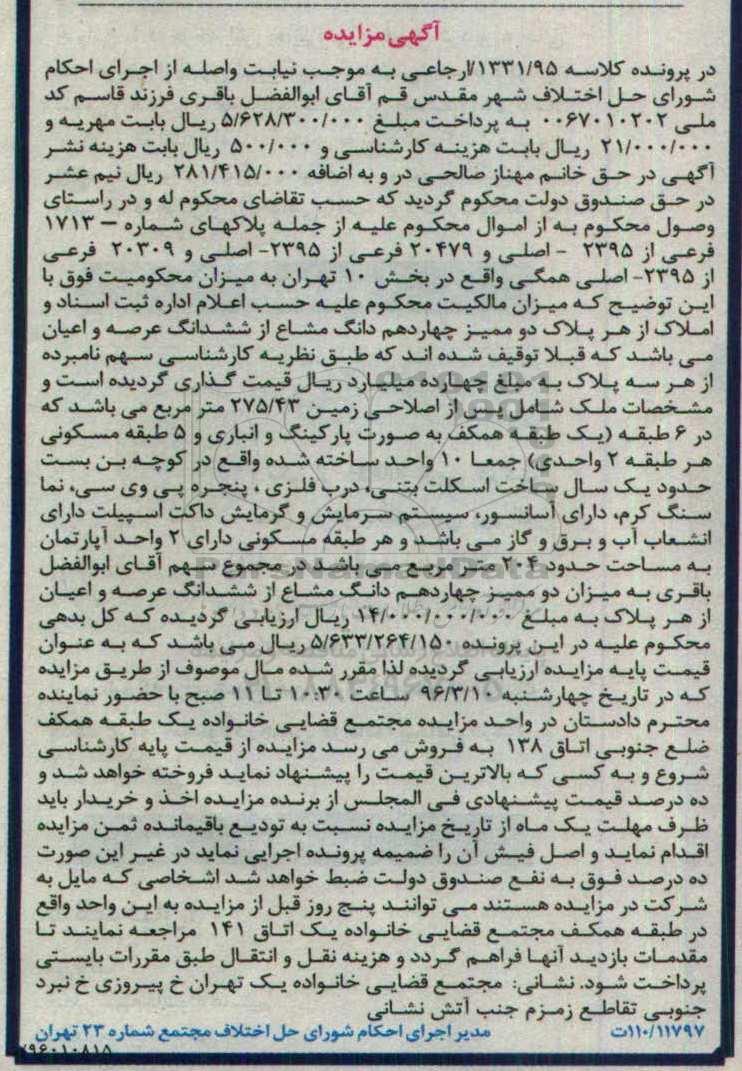 آگهی مزایده
در پرونده کلاسه ۱۳۳۱/۹۵/ارجاعی به موجب نیابت واصله از اجرای احکام
شورای حل اختلاف شهر مقدس قم آقای ابوالفضل باقری فرزند قاسم کد
ملی ۰۰۶۷۰۱۰۲۰۲ به پرداخت مبلغ ۵/۶۲۸/۳۰۰/۰۰۰ ریال بابت مهریه و
۲۱/۰۰۰/۰۰۰ ریال بابت هزینه کارشناسی و ۵۰۰/۰۰۰ ریال بابت هزینه نشر
آگهی در حق خانم مهناز صالحی در و به اضافه ۲۸۱/۴۱۵/۰۰۰ ریال نیم عشر
در حق صندوق دولت محکوم گردید که حسب تقاضای محکوم له و در راستای
وصول محکوم به از اموال محکوم علیه از جمله پلاکهای شماره – ۱۷۱۳
فرعی از ۲۳۹۵ - اصلی و ۲۰۴۷۹ فرعی از ۲۳۹۵- اصلی و ۲۰۳۰۹ فرعی
از ۲۳۹۵- اصلی همگی واقع در بخش ۱۰ تهران به میزان محکومیت فوق با
این توضیح که میزان مالکیت محکوم علیه حسب اعلام اداره ثبت اسناد و
املاک از هر پلاک دو ممیز چهاردهم دانگ مشاع از ششدانگ عرصه و اعیان
می باشد که قبلا توقیف شده اند که طبق نظریه کارشناسی سهم نامبرده
از هر سه پلاک به مبلغ چهارده میلیارد ریال قیمت گذاری گردیده است و
مشخصات ملک شامل پس از اصلاحی زمین ۲۷۵/۴۳ متر مربع می باشد که
در ۶ طبقه (یک طبقه همکف به صورت پارکینگ و انباری و ۵ طبقه مسکونی
هر طبقه ۲ واحدی) جمعا ۱۰ واحد ساخته شده واقع در کوچه بن بست
حدود یک سال ساخت اسکلت بتنی، درب فلزی ، پنجره پی وی سی، نما
سنگ کرم، دارای آسانسور، سیستم سرمایش و گرمایش داکت اسپیلت دارای
انشعاب آب و برق و گاز می باشد و هر طبقه مسکونی دارای ۲ واحد آپارتمان
به مساحت حدود ۲۰۴ متر مربع می باشد در مجموع سهم آقای ابوالفضل
باقری به میزان دو ممیز چهاردهم دانگ مشاع از ششدانگ عرصه و اعیان
از هر پلاک به مبلغ ۱۴/۰۰۰/۰۰۰/۰۰۰ ریال ارزیابی گردیده که کل بدهی
محکوم علیه در این پرونده ۵/۶۳۳/۲۶۴/۱۵۰ ریال می باشد که به عنوان
قیمت پایه مزایده ارزیابی گردیده لذا مقرر شده مال موصوف از طریق مزایده
که در تاریخ چهارشنبه ۹۶/۳/۱۰ ساعت ۱۰:۳۰ تا ۱۱ صبح با حضور نماینده
محترم دادستان در واحد مزایده مجتمع قضایی خانواده یک طبقه همکف
ضلع جنوبی اتاق ۱۳۸ به فروش می رسد مزایده از قیمت پایه کارشناسی
شروع و به کسی که بالاترین قیمت را پیشنهاد نماید فروخته خواهد شد و
ده درصد قیمت پیشنهادی فی المجلس از برنده مزایده اخذ و خریدار باید
ظرف مهلت یک ماه از تاریخ مزایده نسبت به تودیع باقیمانده ثمن مزایده
اقدام نماید و اصل فیش آن را ضمیمه پرونده اجرایی نماید در غیر این صورت
ده درصد فوق به نفع صندوق دولت ضبط خواهد شد اشخاصی که مایل به
شرکت در مزایده هستند می توانند پنج روز قبل از مزایده به این واحد واقع
در طبقه همکف مجتمع قضایی خانواده یک اتاق ۱۴۱ مراجعه نمایند تا
مقدمات بازدید آنها فراهم گردد و هزینه نقل و انتقال طبق مقررات بایستی
پرداخت شود. نشانی: مجتمع قضایی خانواده یک تهران خ پیروزی خ نبرد
جنوبی تقاطع زمزم جنب آتش نشانی
۱۱۰/۱۱۷۹۷ت مدیر اجرای احکام شورای حل اختلاف مجتمع شماره ۲۳ تهران
۹۶۰۱۰۸۱۵
ParsNamadData